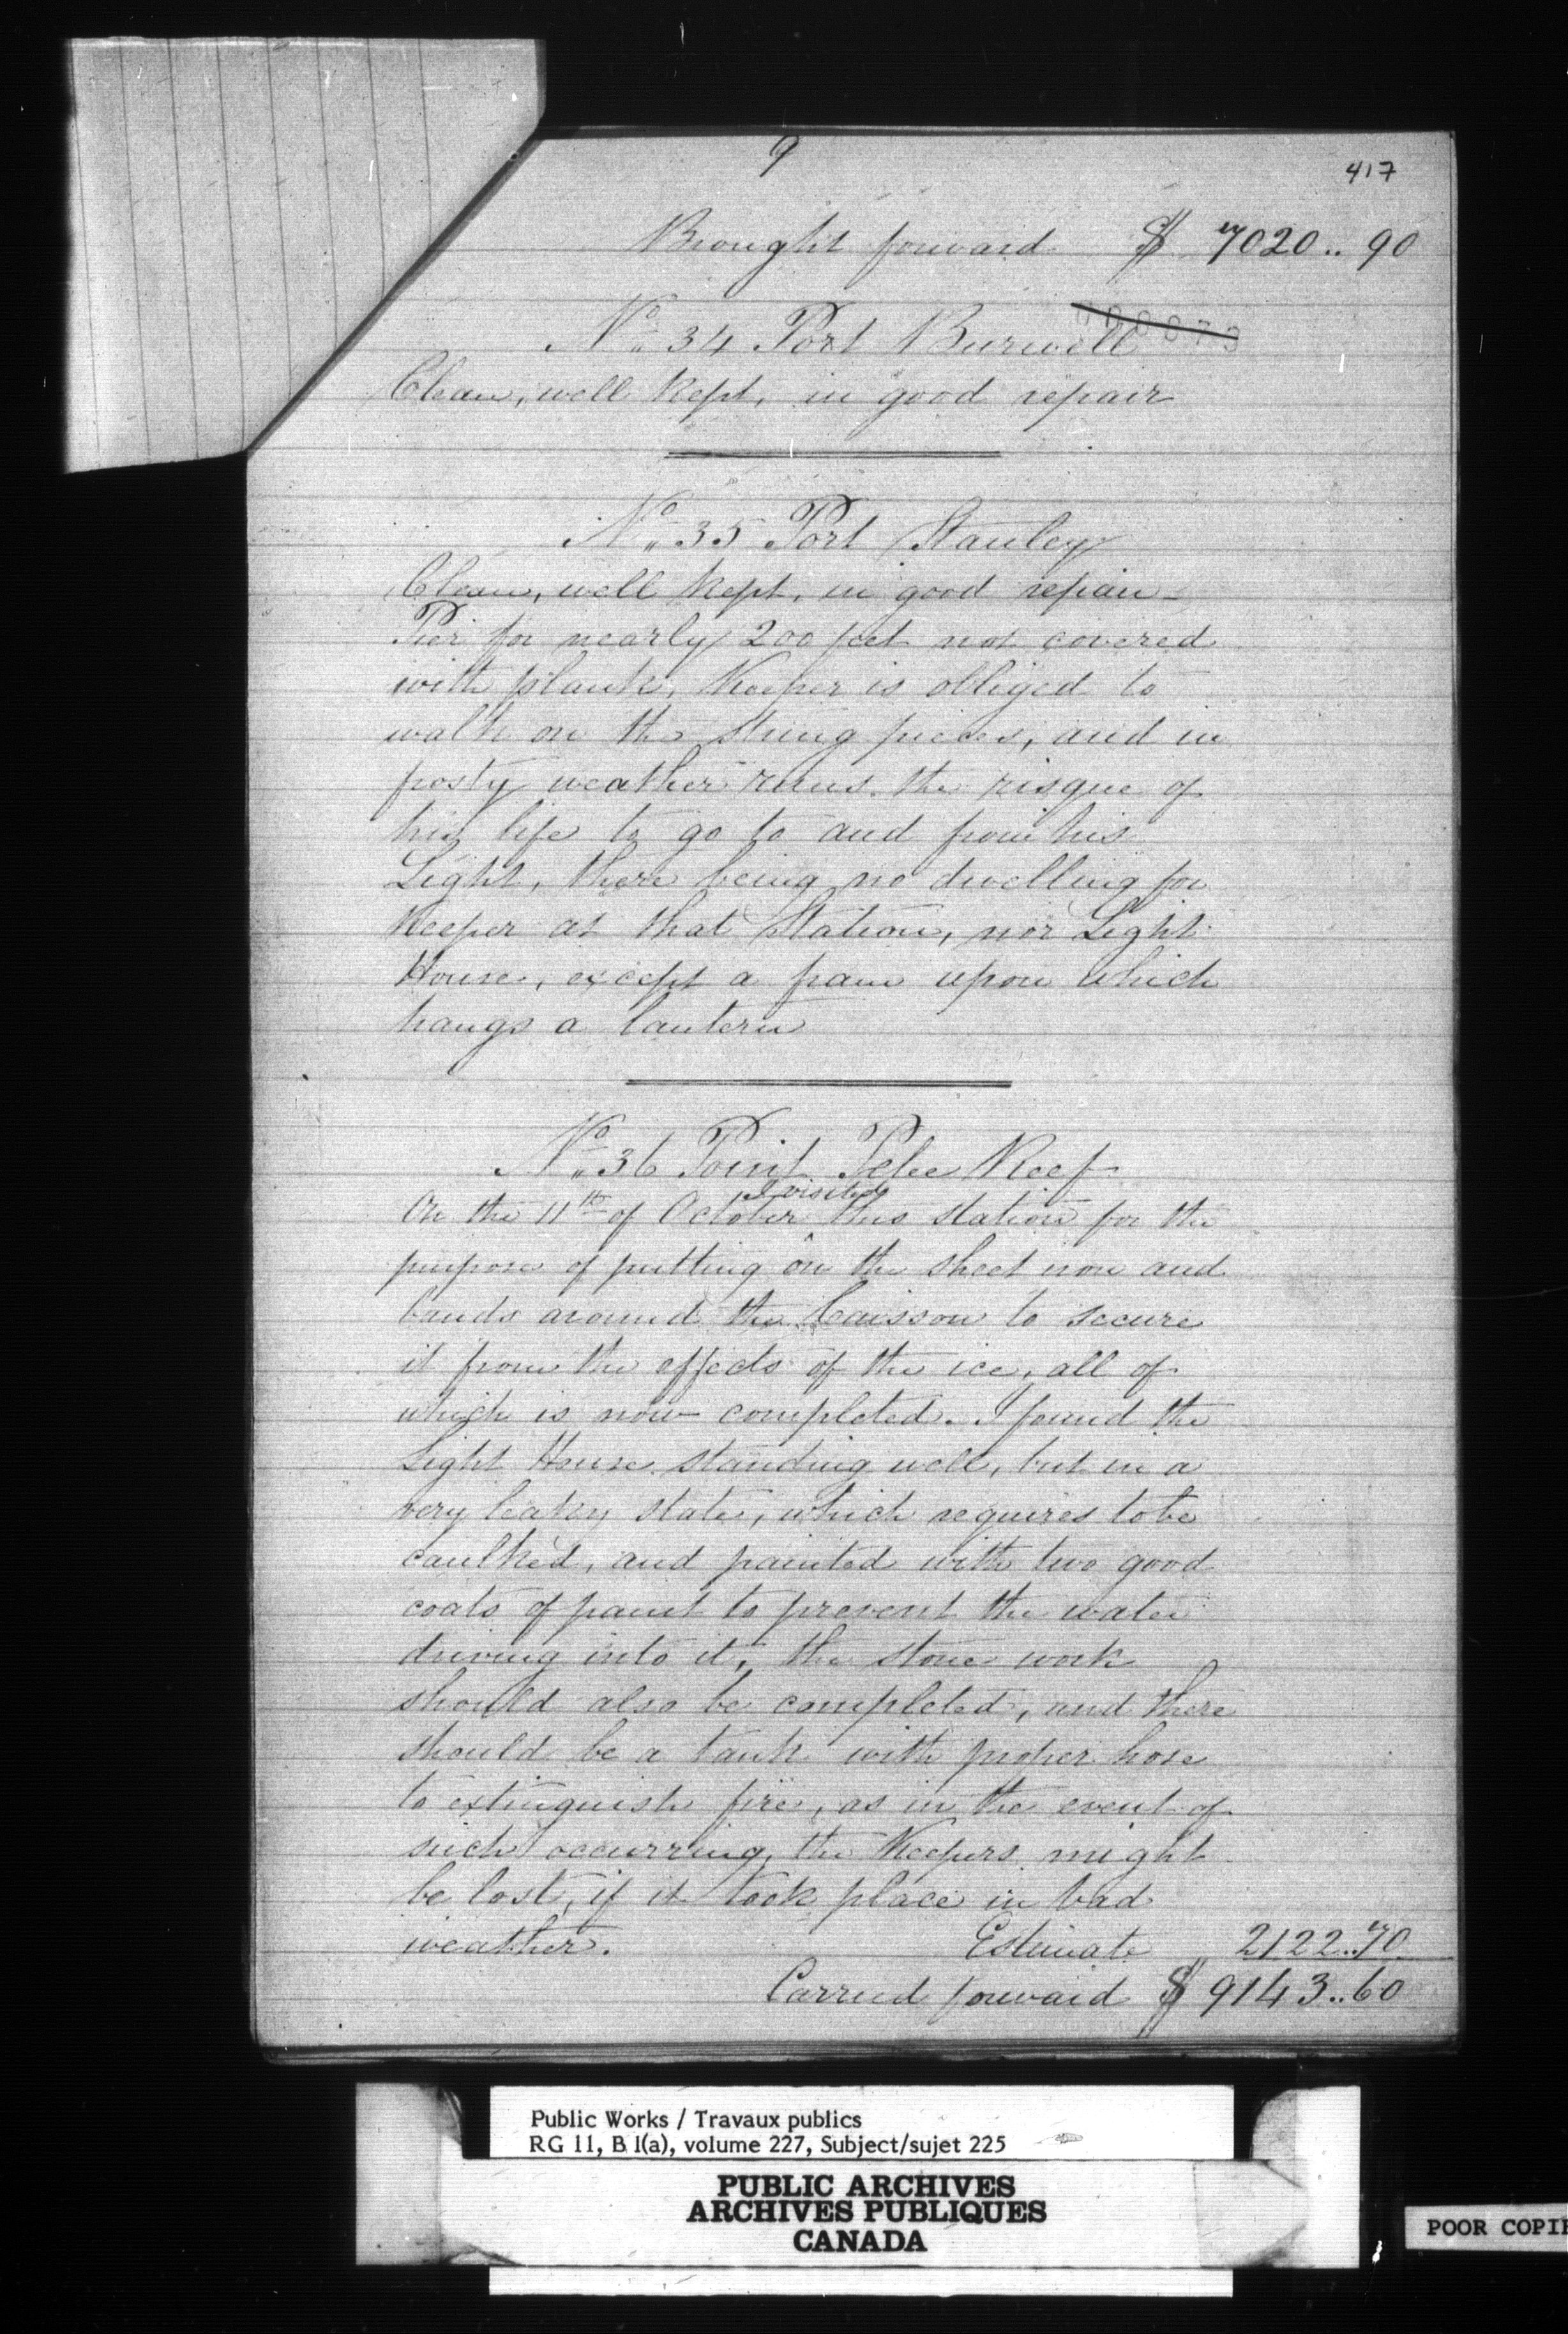 9
417
Brought forward $ 7020.. 90
No. 34 Port Burwell
Clean, well kept, in good repair
No. 35 Port Stanley
Clean, well kept, in good repair -
Pier for nearly 200 feet not covered
with plank, Keeper is obliged to
walk on the string pieces, and in
frosty weather runs the risque of
his life to go to and from his
Light, there being no dwelling for
Keeper at that Station, nor Light
House, except a fram upon which
hangs a lantern
No. 36 Point Pelee Reef
On the 11th of October I visited this station for the
purpose of putting on the sheet iron and
bands around the Caisson to secure
it from the effects of the ice, all of
which is now completed. I found the
Light House standing well, but in a
very leaky state, which requires to be
caulked, and painted with two good
coats of paint to prevent the water
driving into it, the stone work
should also be completed, and there
should be a tank with proper hose
to extinguish fire, as in the event of
such occurring, the Keepers might
be lost, if it took place in bad
weather. Estimate 2122..70
Carried forward $ 9143..60
Public Works / Travaux publics
RG 11, B 1(a), volume 227, Subject/sujet 225
PUBLIC ARCHIVES
ARCHIVES PUBLIQUES
CANADA
POOR COPIE